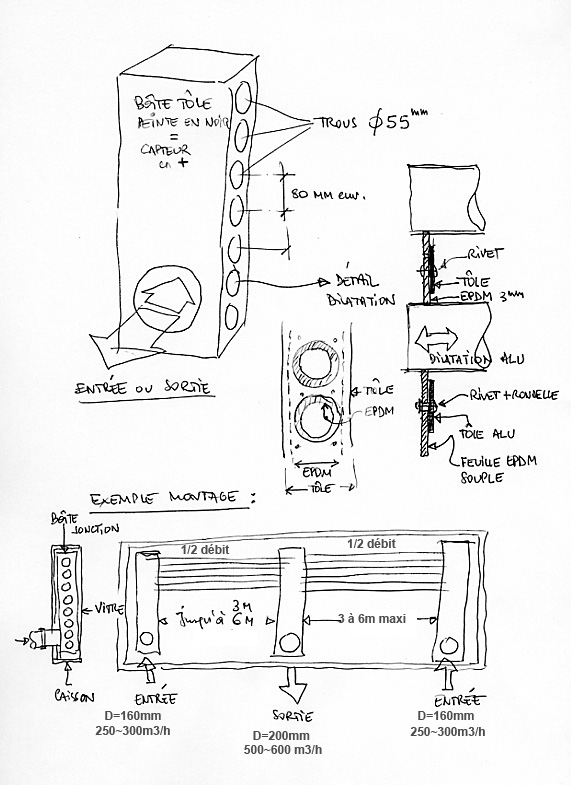 BOÎTE TÔLE
PEINTE EN NOIR
=
CAPTEUR
+
TROUS Ø55mm
80 MM env.
DÉTAIL
DILATATION
ENTRÉE OU SORTIE
RIVET
TÔLE
EPDM 3mm
DILATATION ALU
RIVET + RONDELLE
TÔLE ALU
FEUILLE EPDM
SOUPLE
TÔLE
EPDM
EPDM
TÔLE
EXEMPLE MONTAGE :
BOÎTE
JONCTION
VITRE
CAISSON
1/2 débit
1/2 débit
jusqu'à 3M
6M
3 à 6m maxi
ENTRÉE
D=160mm
250~300m3/h
SORTIE
D=200mm
500~600 m3/h
ENTRÉE
D=160mm
250~300m3/h